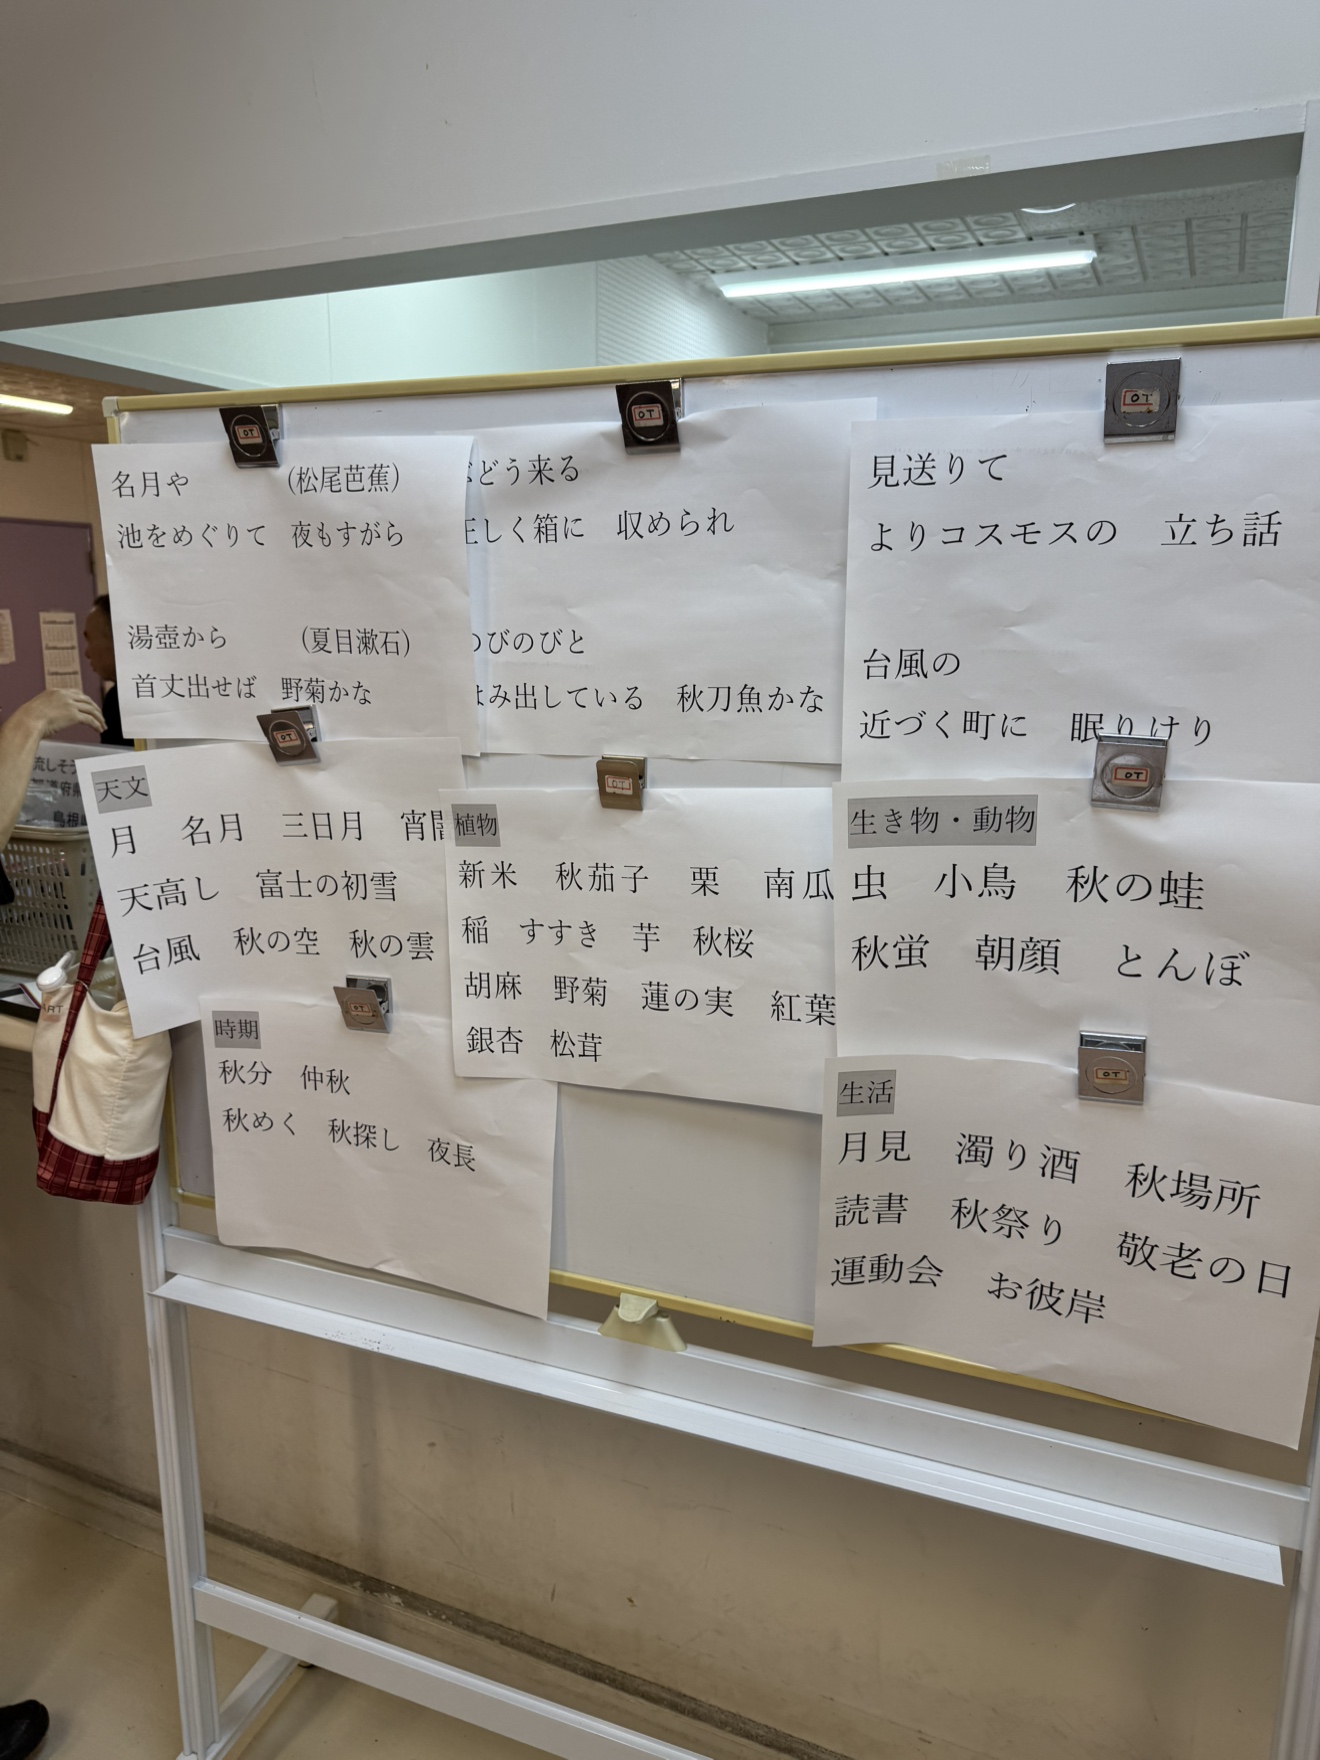 名月や　（松尾芭蕉）
池をめぐりて　夜もすがら
湯壺から　（夏目漱石）
首丈出せば　野菊かな
どう来る
正しく箱に　収められ
のびのびと
はみ出している　秋刀魚かな
見送りて
よりコスモスの　立ち話
台風の
近づく町に　眠りけり
天文
月　名月　三日月　宵闇
天高し　富士の初雪
台風　秋の空　秋の雲
植物
新米　秋茄子　栗　南瓜
稲　すすき　芋　秋桜
胡麻　野菊　蓮の実　紅葉
銀杏　松茸
生き物・動物
虫　小鳥　秋の蛙
秋蛍　朝顔　とんぼ
時期
秋分　仲秋
秋めく　秋探し　夜長
生活
月見　濁り酒　秋場所
読書　秋祭り　敬老の日
運動会　お彼岸
OT
OT
OT
OT
OT
OT
OT
OT
流しそう
都道府県
島根